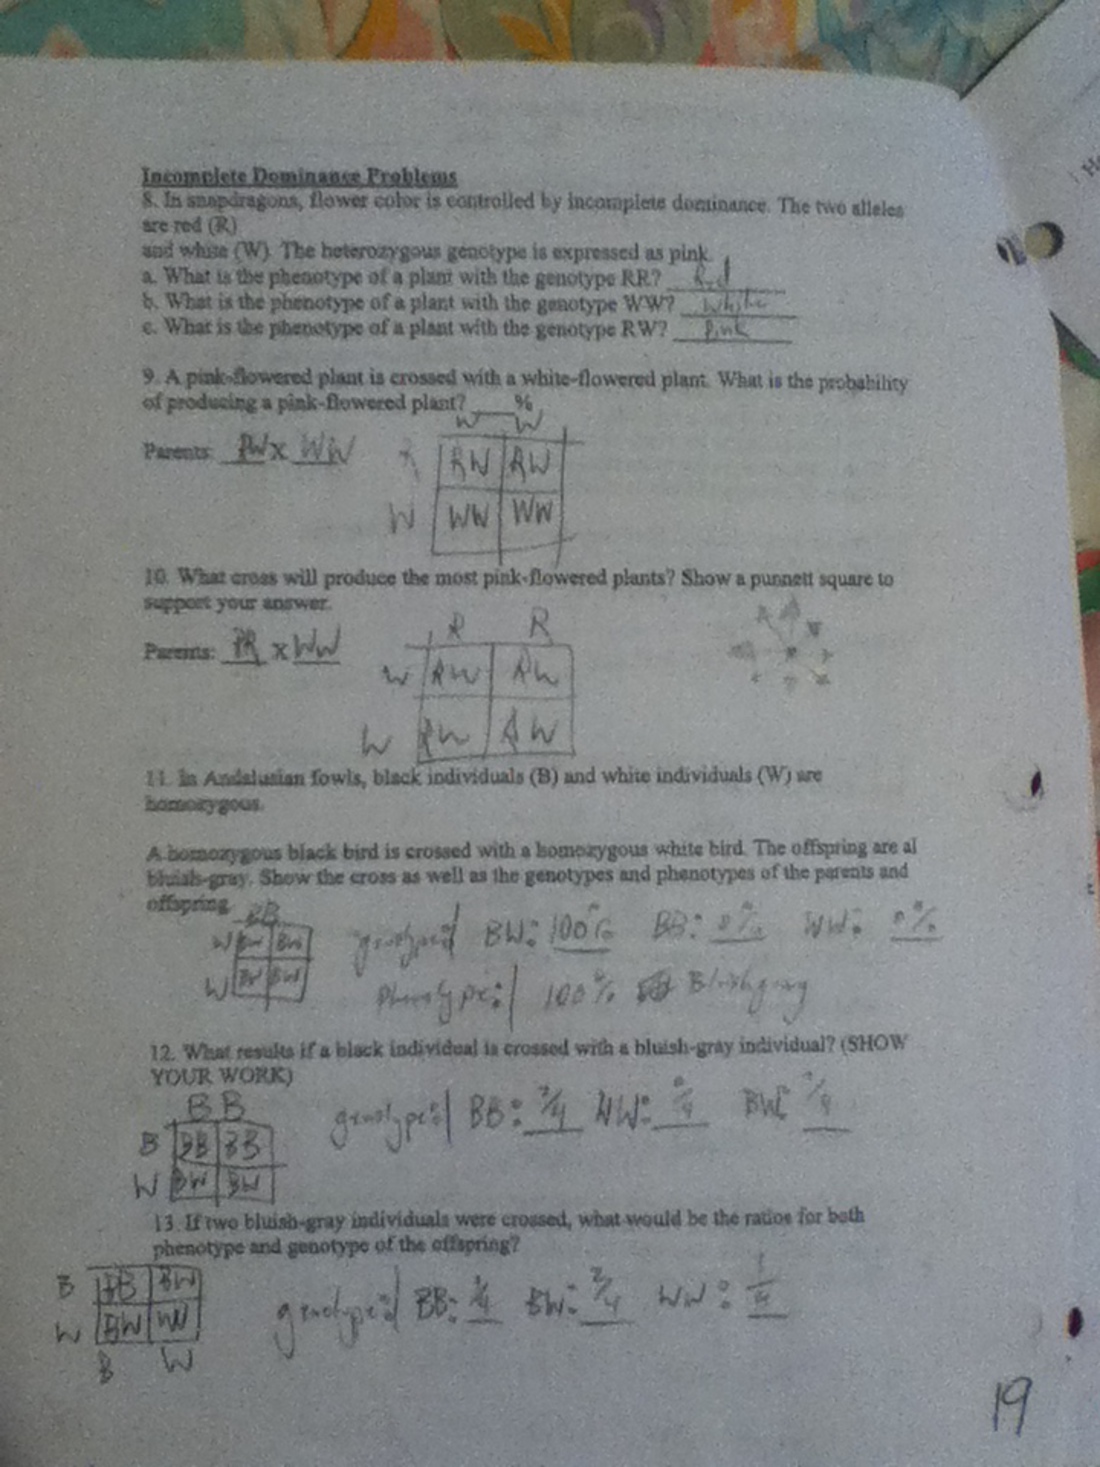 Incomplete Dominance Problems
8. In snapdragons, flower color is controlled by incomplete dominance. The two alleles
are red (R)
and white (W). The heterozygous genotype is expressed as pink.
a. What is the phenotype of a plant with the genotype RR? Red
b. What is the phenotype of a plant with the genotype WW? White
c. What is the phenotype of a plant with the genotype RW? Pink
9. A pink-flowered plant is crossed with a white-flowered plant. What is the probability
of producing a pink-flowered plant? ___%
W W
Parents: RW x WW R RW RW
W WW WW
10. What cross will produce the most pink-flowered plants? Show a punnett square to
support your answer.
R R
Parents: RR x WW W RW RW
W RW RW
11. In Andalusian fowls, black individuals (B) and white individuals (W) are
homozygous.
A homozygous black bird is crossed with a homozygous white bird. The offspring are al
bluish-gray. Show the cross as well as the genotypes and phenotypes of the parents and
offspring.
BB
W BW BW BW: 100% BB: 0% WW: 0%
W BW BW Phenotype: 100% Bluishgray
12. What results if a black individual is crossed with a bluish-gray individual? (SHOW
YOUR WORK)
B B genotype: BB: 2/4 WW: 0/4 BW: /4
B BB BB
W BW BW
13. If two bluish-gray individuals were crossed, what would be the ratios for both
phenotype and genotype of the offspring?
B BB BW genotype: BB: 1/4 BW: 2/4 WW: 1/4
W BW WW
B W
19